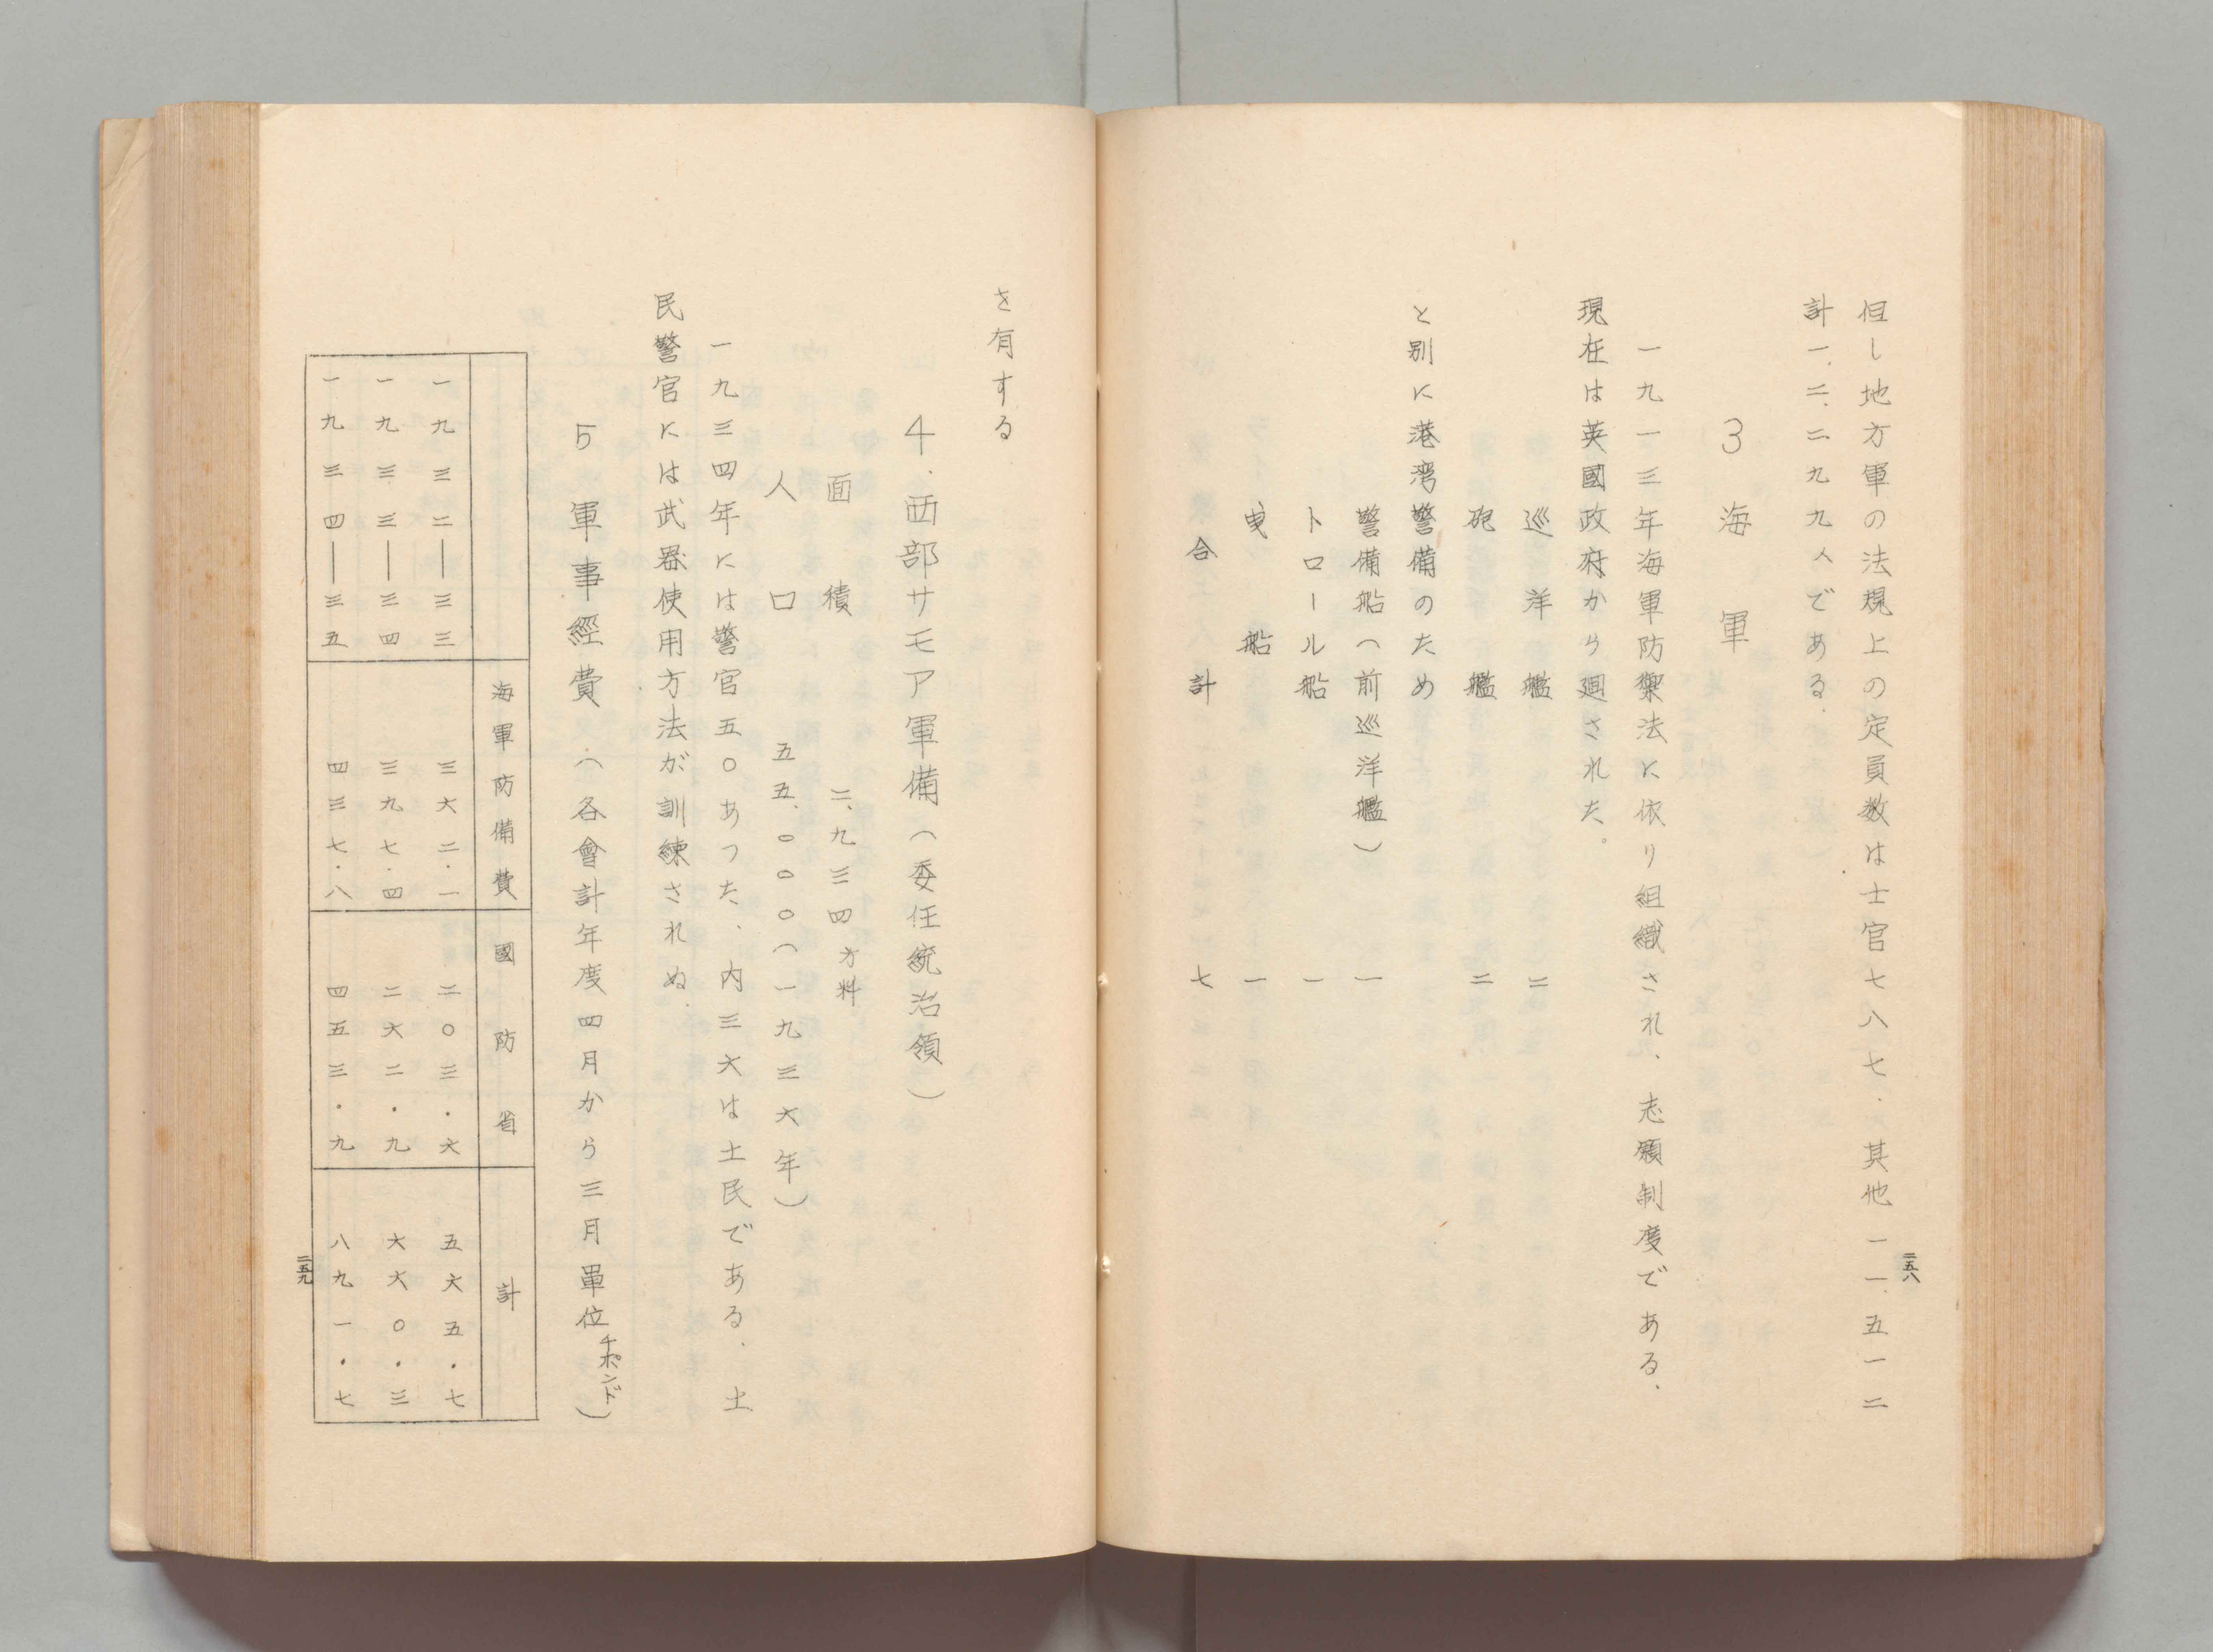 但し地方軍の法規上の定員数は士官七八七、其他一一、五一二
計一、二、二九九人である、
3 海軍
一九一三年海軍防禦法に依り組織され、志願制度である、
現在は英國政府から廻された。
巡洋艦 二
砲艦 二
と別に港湾警備のため
警備船(前巡洋艦) 一
トロール船 一
曳船 一
合計 七
二五八
を有する
4.西部サモア軍備(委任統治領)
面積 二、九三四方粁
人口 五五、〇〇〇(一九三六年)
一九三四年には警官五〇あつた、内三六は土民である、土
民警官には武器使用方法が訓練されぬ、
5 軍事經費(各會計年度四月から三月單位千ポンド)
海軍防備費 國防省 計
一九三二―三三 三六二・一 二〇三・六 五六五・七
一九三三―三四 三九七・四 二六二・九 六六〇・三
一九三四―三五 四三七・八 四五三・九 八九一・七
二五九